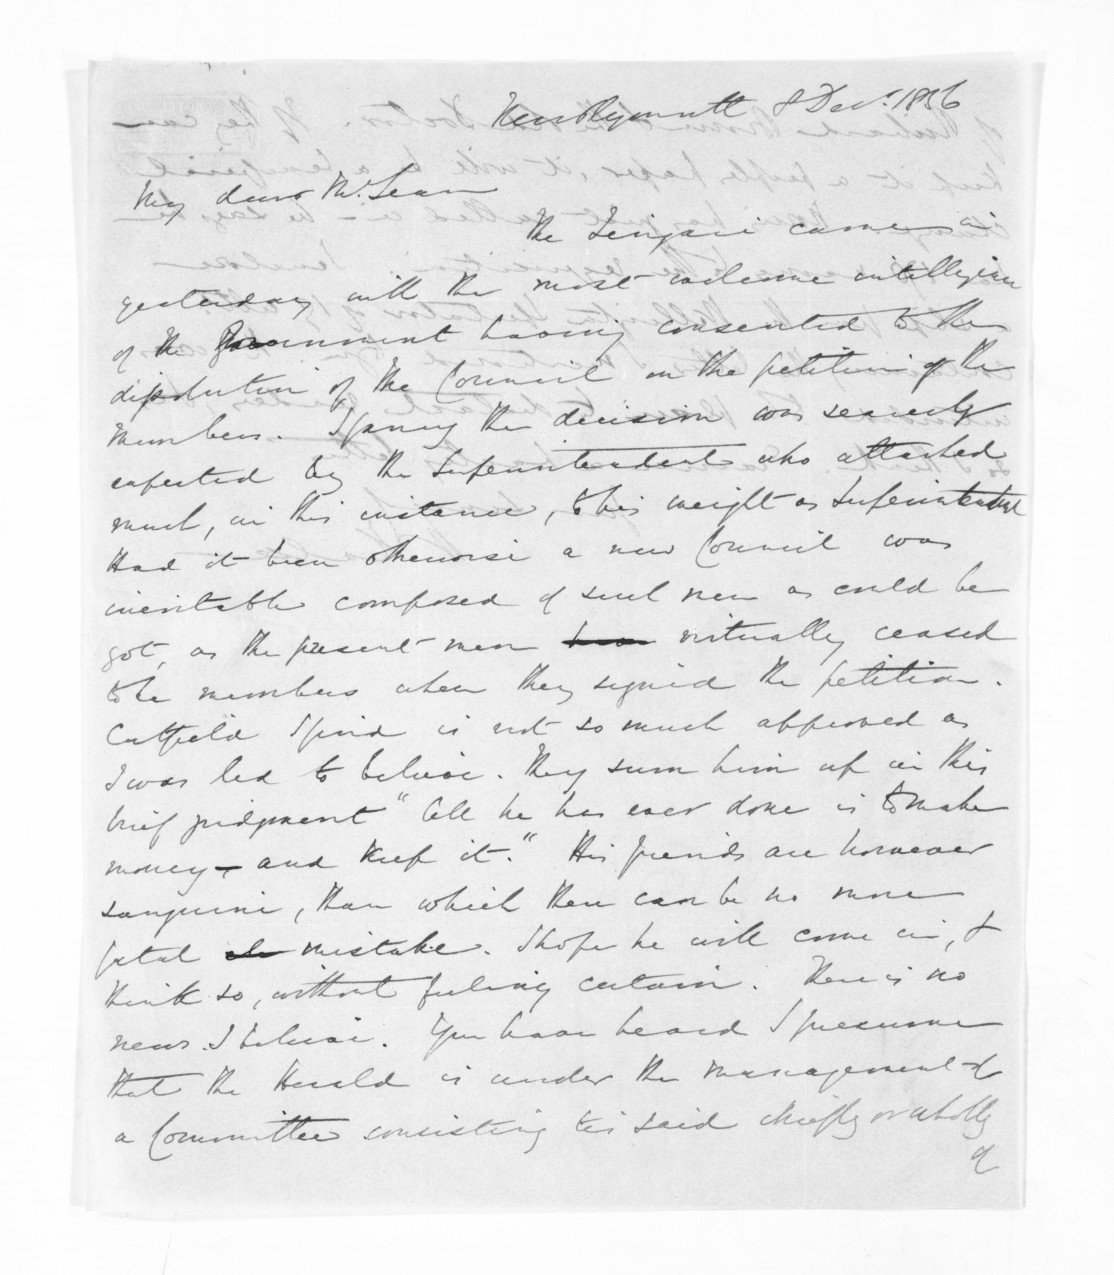 New Plymouth 8 Decr. 1856
My dear McLean
The Zingari came in
yesterday with the most welcome intelligence
of the Government having consented to the
dissolution of the Council on the petition of the
Members. I fancy the decision was scarcely
expected by the Superintendent who attached
much, in this instance, to his weight as Superintendent
Had it been otherwise a new Council was
inevitable composed of such men as could be
got, as the present men virtually ceased
to be members when they signed the petition.
Cutfield I find is not so much approved as
I was led to believe. They sum him up in this
brief judgment "All he has ever done is to make
money – and keep it." His friends are however
sanguine, than which there can be no more
fatal mistake. I hope he will come in, &
think so, without feeling certain. There is no
news I believe. You have heard I presume
that the Herald is under the management of
a Committee consisting tis said chiefly or wholly
of